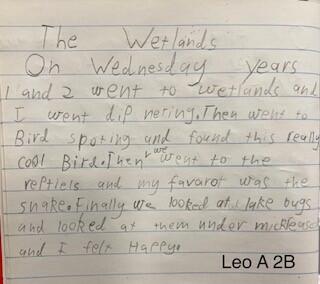 The Wetlands
On Wednesday years
1 and 2 went to wetlands and
I went dip nering. Then went to
Bird spoting and found this really
cool Bird. Then we went to the
reptiels and my favarot was the
snake. Finally we looked at lake bugs
and looked at them under
and I felt Happy.
Leo A 2B